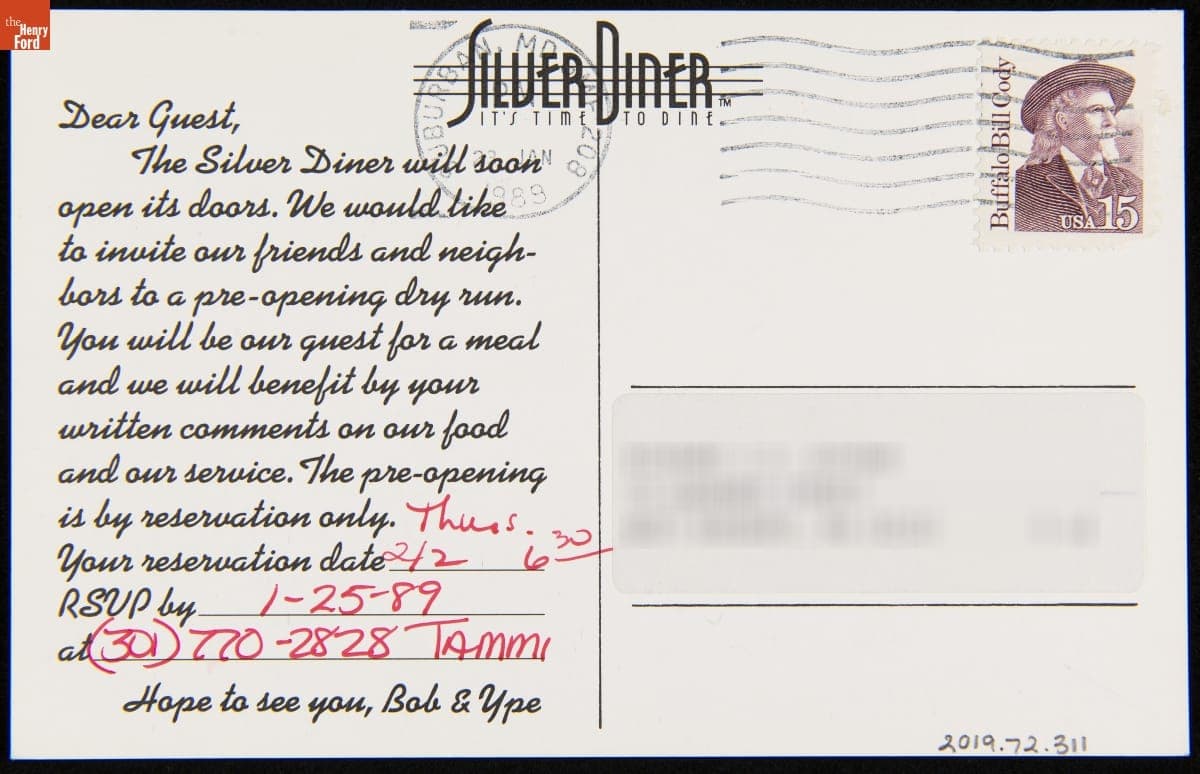 the
Henry
Ford
SILVER DINER™
IT'S TIME TO DINE
SUBURBAN, MD
208
PM
23 JAN
1989
Buffalo Bill Cody
USA 15
Dear Guest,
The Silver Diner will soon
open its doors. We would like
to invite our friends and neigh-
bors to a pre-opening dry run.
You will be our guest for a meal
and we will benefit by your
written comments on our food
and our service. The pre-opening
is by reservation only. Thurs.
Your reservation date 2/2 6 30
RSVP by 1-25-89
at (301) 770-2828 TAMMI
Hope to see you, Bob & Ype
2019.72.311